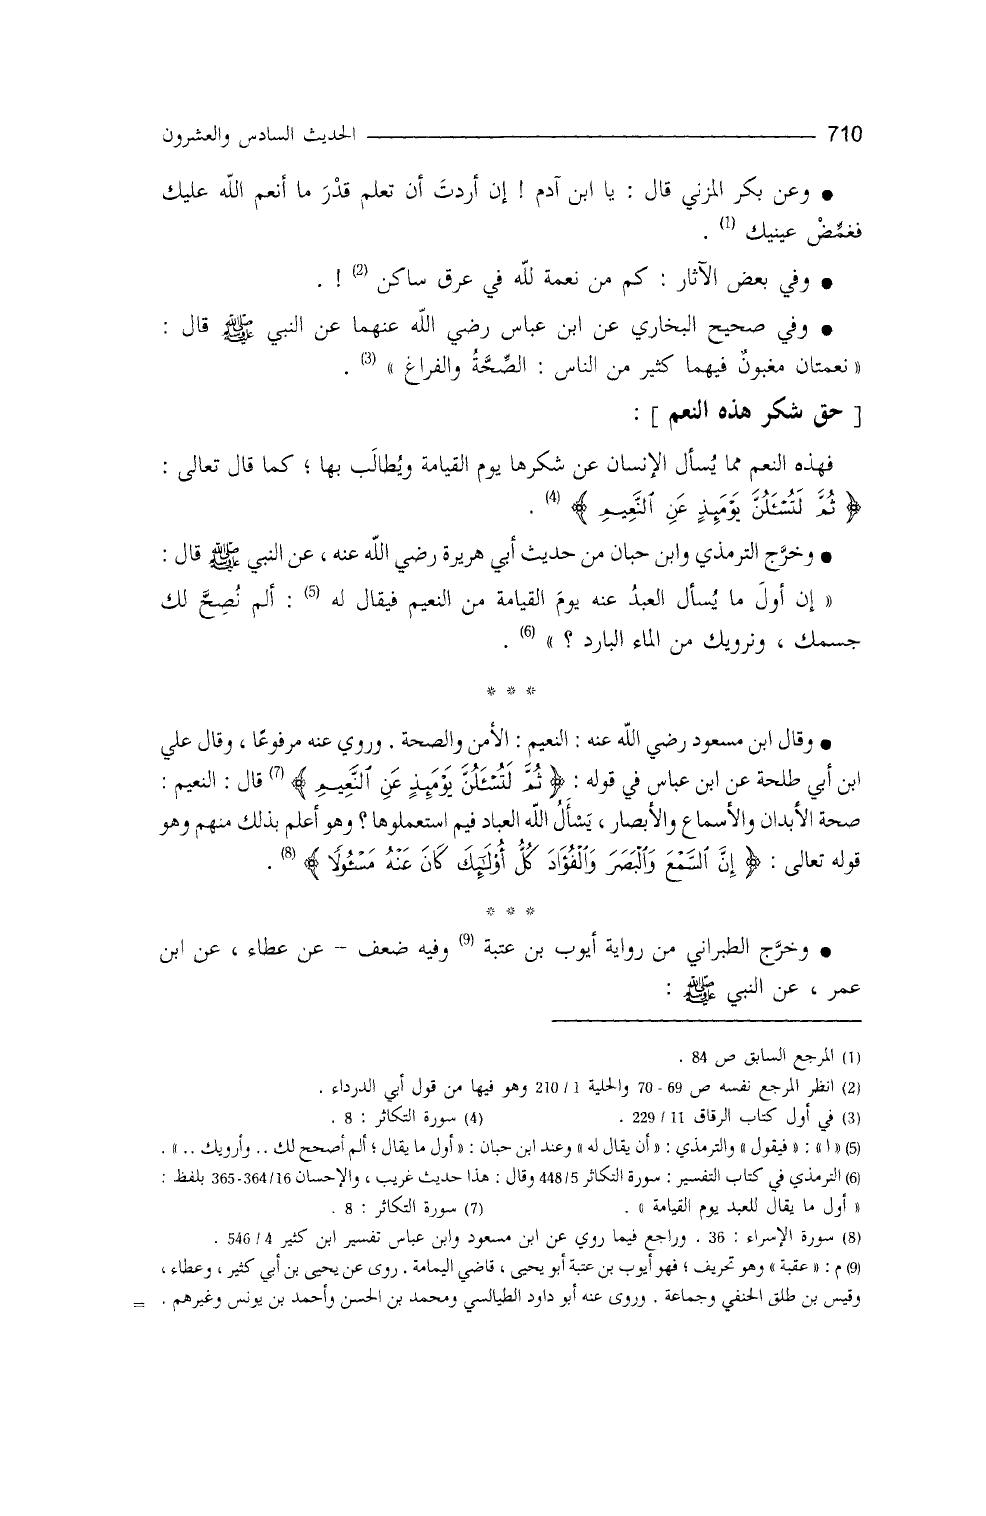 710 الحديث السادس والعشرون
● وعن بكر المزني قال : يا ابن آدم ! إن أردتَ أن تعلم قدْرَ ما أنعم اللّه عليك
فغمِّضْ عينيك (1) .
● وفي بعض الآثار : كم من نعمة للّه في عرق ساكن (2) ! .
● وفي صحيح البخاري عن ابن عباس رضي اللّه عنهما عن النبي ﷺ قال :
« نعمتان مغبونٌ فيهما كثير من الناس : الصِّحَّةُ والفراغ » (3) .
[ حق شكر هذه النعم ] :
فهذه النعم مما يُسأل الإنسان عن شكرها يوم القيامة ويُطالَب بها ؛ كما قال تعالى :
﴿ ثُمَّ لَتُسْـَٔلُنَّ يَوْمَئِذٍ عَنِ ٱلنَّعِيمِ ﴾ (4) .
● وخرَّج الترمذي وابن حبان من حديث أبي هريرة رضي اللّه عنه ، عن النبي ﷺ قال :
« إن أولَ ما يُسأل العبدُ عنه يومَ القيامة من النعيم فيقال له (5) : ألم نُصِحَّ لك
جسمك ، ونرويك من الماء البارد ؟ » (6) .
* * *
● وقال ابن مسعود رضي اللّه عنه : النعيم : الأمن والصحة . وروي عنه مرفوعًا ، وقال علي
ابن أبي طلحة عن ابن عباس في قوله : ﴿ ثُمَّ لَتُسْـَٔلُنَّ يَوْمَئِذٍ عَنِ ٱلنَّعِيمِ ﴾ (7) قال : النعيم :
صحة الأبدان والأسماع والأبصار ، يَسْأَلُ اللّه العباد فيم استعملوها ؟ وهو أعلم بذلك منهم وهو
قوله تعالى : ﴿ إِنَّ ٱلسَّمْعَ وَٱلْبَصَرَ وَٱلْفُؤَادَ كُلُّ أُوْلَٰٓئِكَ كَانَ عَنْهُ مَسْـُٔولًا ﴾ (8) .
* * *
● وخرَّج الطبراني من رواية أيوب بن عتبة (9) وفيه ضعف – عن عطاء ، عن ابن
عمر ، عن النبي ﷺ :
(1) المرجع السابق ص 84 .
(2) انظر المرجع نفسه ص 69 - 70 والحلية 1 / 210 وهو فيها من قول أبي الدرداء .
(3) في أول كتاب الرقاق 11 / 229 . (4) سورة التكاثر : 8 .
(5) « ا » : « فيقول » والترمذي : « أن يقال له » وعند ابن حبان : « أول ما يقال ؛ ألم أصحح لك .. وأرويك .. » .
(6) الترمذي في كتاب التفسير : سورة التكاثر 448/5 وقال : هذا حديث غريب ، والإحسان 364/16-365 بلفظ :
« أول ما يقال للعبد يوم القيامة » . (7) سورة التكاثر : 8 .
(8) سورة الإسراء : 36 . وراجع فيما روي عن ابن مسعود وابن عباس تفسير ابن كثير 4 / 546 .
(9) م : « عقبة » وهو تحريف ؛ فهو أيوب بن عتبة أبو يحيى ، قاضي اليمامة . روى عن يحيى بن أبي كثير ، وعطاء ،
وقيس بن طلق الحنفي وجماعة . وروى عنه أبو داود الطيالسي ومحمد بن الحسن وأحمد بن يونس وغيرهم . =